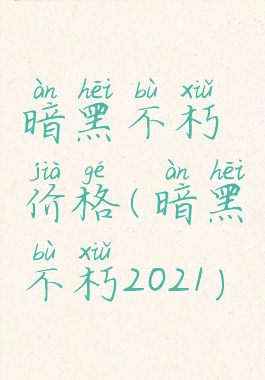 àn hēi bù xiǔ
暗黑不朽
jià gé àn hēi
价格(暗黑
bù xiǔ
不朽2021)